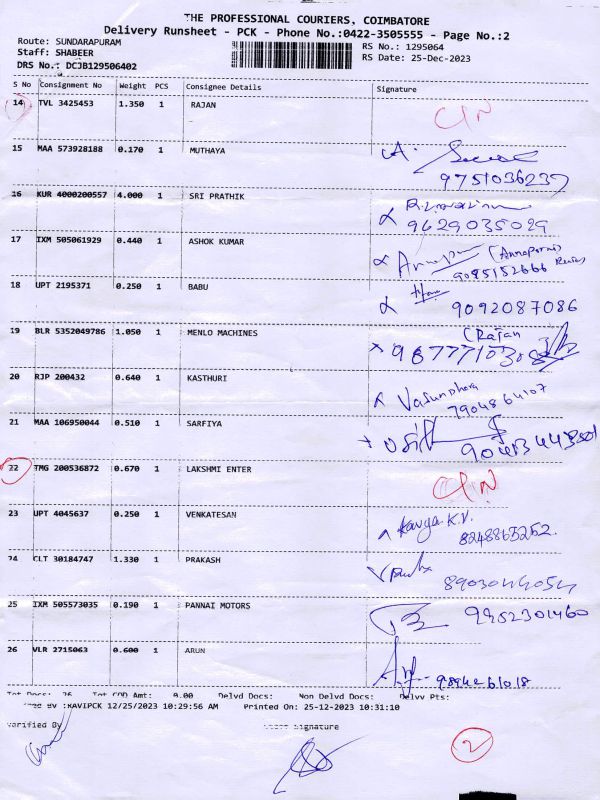 THE PROFESSIONAL COURIERS, COIMBATORE
Delivery Runsheet - PCK - Phone No.:0422-3505555 - Page No.:2
Route: SUNDARAPURAM
RS No.: 1295064
Staff: SHABEER
RS Date: 25-Dec-2023
DRS No.: DCJB129506402
S No Consignment No Weight PCS Consignee Details Signature
14 TVL 3425453 1.350 1 RAJAN
15 MAA 573928188 0.170 1 MUTHAYA
9751036237
16 KUR 4000200557 4.000 1 SRI PRATHIK
9629035029
17 IXM 505061929 0.440 1 ASHOK KUMAR
9095152666
18 UPT 2195371 0.250 1 BABU
9092087086
19 BLR 5352049786 1.050 1 MENLO MACHINES
(Rajan
20 RJP 200432 0.640 1 KASTHURI
Vasundhara
7904864107
21 MAA 106950044 0.510 1 SARFIYA
22 TMG 200536872 0.670 1 LAKSHMI ENTER
23 UPT 4045637 0.250 1 VENKATESAN
Kavya K.V.
8248865252.
24 CLT 30184747 1.330 1 PRAKASH
25 IXM 505573035 0.190 1 PANNAI MOTORS
9952301460
26 VLR 2715063 0.600 1 ARUN
9894261018
Tot Docs: 26 Tot COD Amt: 0.00 Delvd Docs: Non Delvd Docs: Delvv Pts:
BY :KAVIPCK 12/25/2023 10:29:56 AM Printed On: 25-12-2023 10:31:10
Verified By
Signature
2